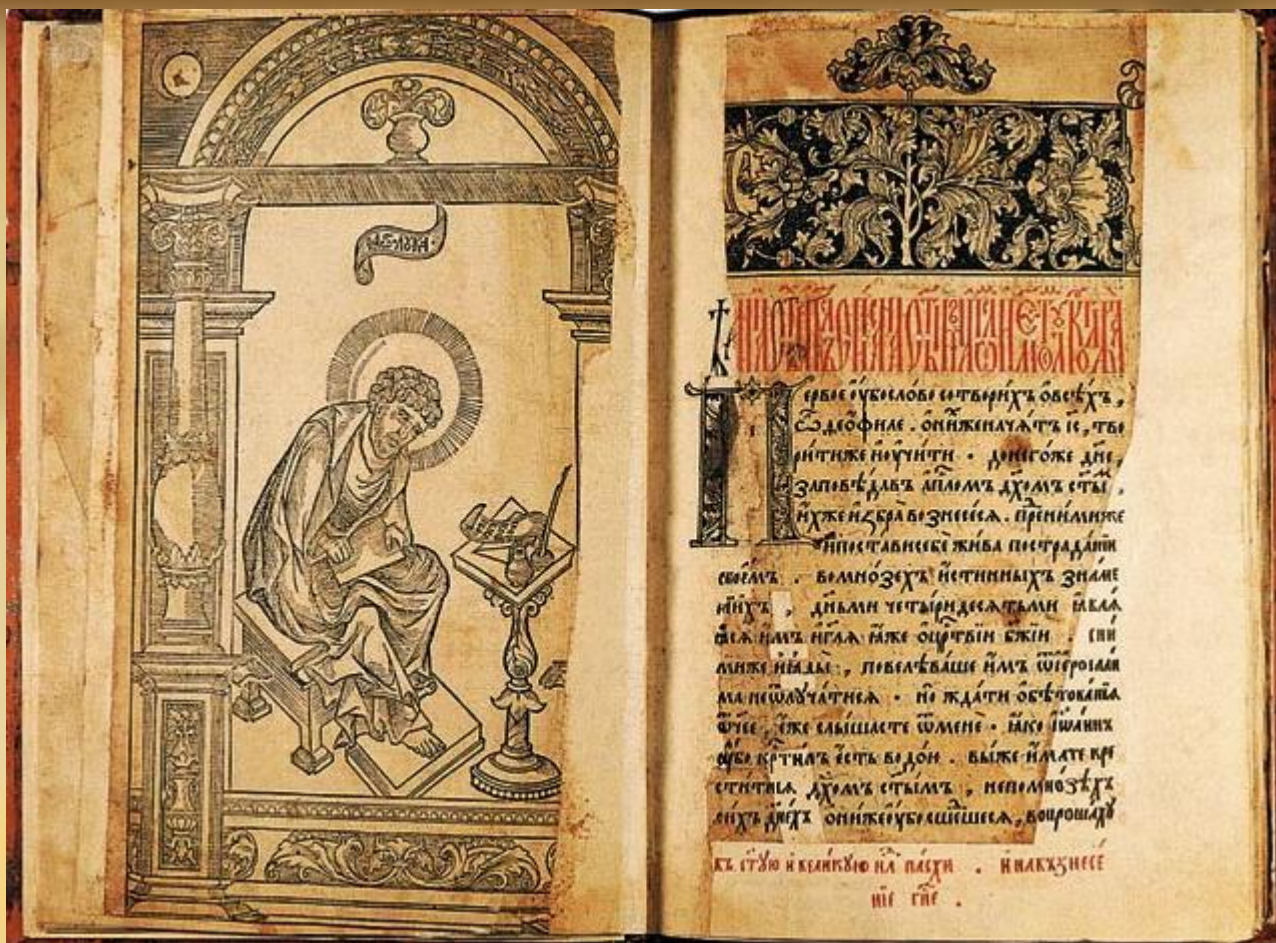 лꙋка
Первое ᲂу҆бо сло́во сотвори́хъ ѡ҆ всѣ́хъ,
ѽ Ѳео́филе . ѡ҆ ни́хже нача́тъ і҆с҃, тво
ри́ти же и҆ ᲂу҆чи́ти . до него́же дн҃е,
заповѣ́давъ а҆пⷭ҇ломъ дх҃омъ ст҃ыⷨ ,
и҆́хже и҆збра̀ вознесе́сѧ . пред̾ ни́ми же
и҆ поста́ви себѐ жи́ва по страда́нїи
свое́мъ . во мно́зехъ и҆́стинныхъ зна́ме
нїихъ , дньмѝ четы́ридесѧтьми ꙗ҆влѧ́
ѧсѧ и҆̀мъ и҆ гл҃ѧ ꙗ҆́же ѡ҆ црⷭ҇твїи бж҃їи . с ни́
ми же и҆ ꙗ҆ды̀ , повелѣва́ше и҆̀мъ ѿ і҆ерⷭ҇али
ма не ѿлꙋча́тисѧ . но жда́ти ѡ҆бѣтова́нїѧ
ѻ҆́ч҃ее , є҆́же слы́шасте ѿ менѐ . ꙗ҆́кѡ і҆ѡа́ннъ
ᲂу҆́бо крⷭ҇ти́лъ є҆́сть водо́ю . вы́ же и҆́мате кре
сти́тисѧ дх҃омъ ст҃ы́мъ , не по мно́зѣхъ
си́хъ дне́хъ ѻ҆ни́ же ᲂу҆́бо сше́дшесѧ, вопроша́хꙋ
въ ст҃ꙋ́ю и҆ вели́кꙋю нⷣлю па́схи . и҆ на възнесе́
нїе гⷭ҇не .